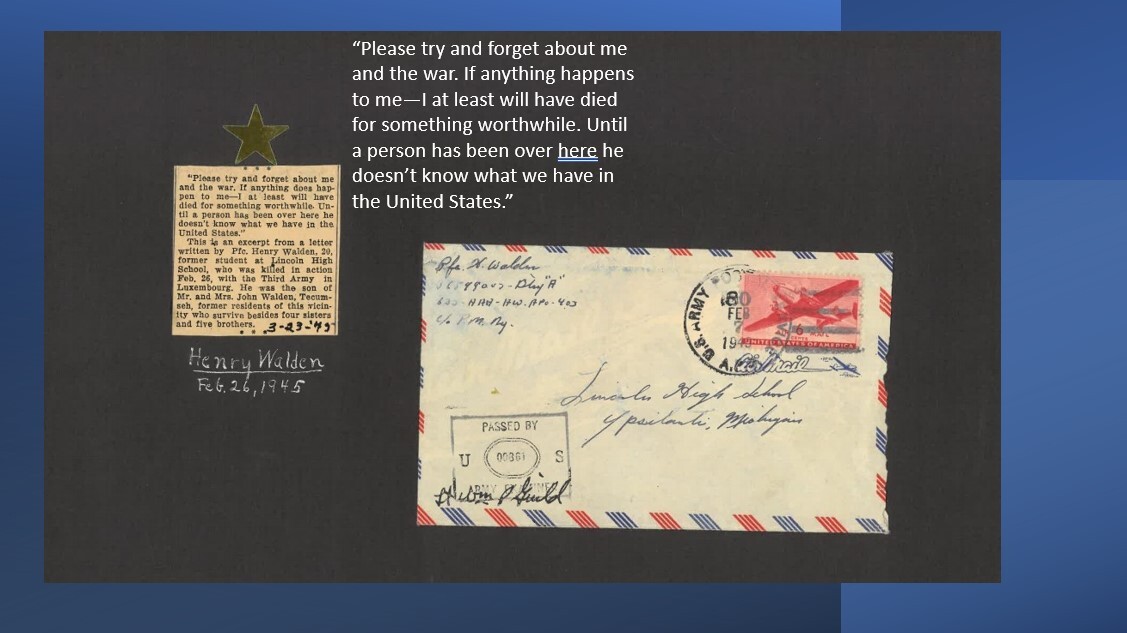 “Please try and forget about me
and the war. If anything happens
to me—I at least will have died
for something worthwhile. Until
a person has been over here he
doesn’t know what we have in
the United States.”
"Please try and forget about me
and the war. If anything does hap-
pen to me—I at least will have
died for something worthwhile. Un-
til a person has been over here he
doesn't know what we have in the
United States."
This is an excerpt from a letter
written by Pfc. Henry Walden, 20,
former student at Lincoln High
School, who was killed in action
Feb. 26, with the Third Army in
Luxembourg. He was the son of
Mr. and Mrs. John Walden, Tecum-
seh, former residents of this vicin-
ity who survive besides four sisters
and five brothers.
3-23-'45
Henry Walden
Feb. 26, 1945
Pfc. H. Walden
U.S. ARMY
FEB
7
UNITED STATES OF AMERICA
Lincoln High School
Ypsilanti, Michigan
PASSED BY
U S
ARMY EXAMINER